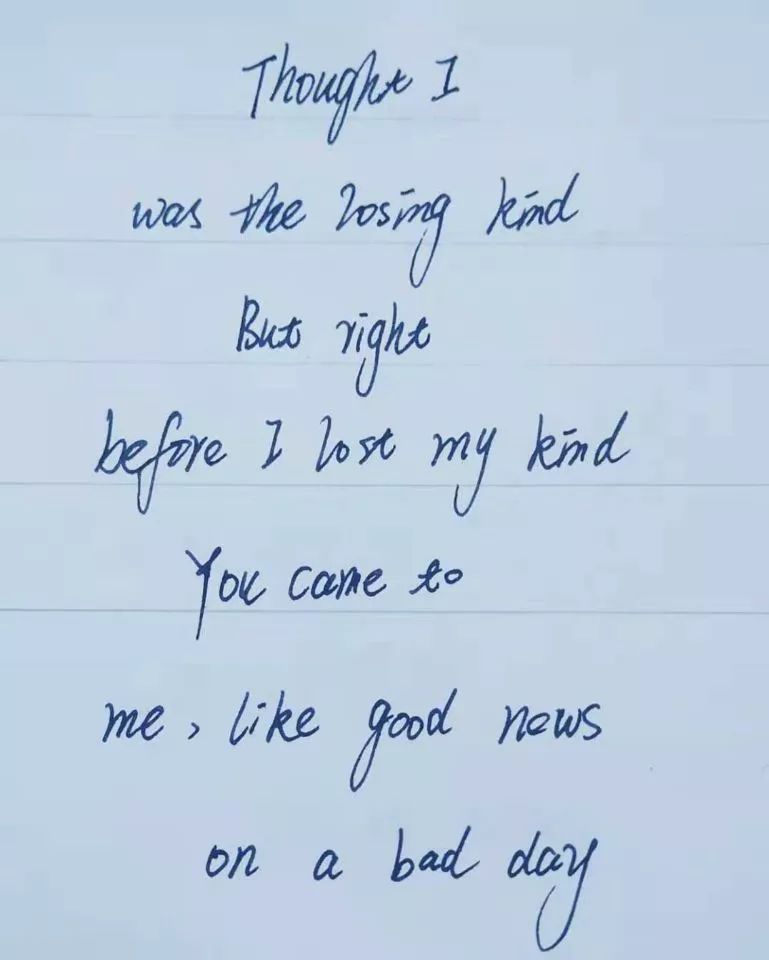 Thought I
was the losing kind
But right
before I lost my kind
You came to
me, like good news
on a bad day